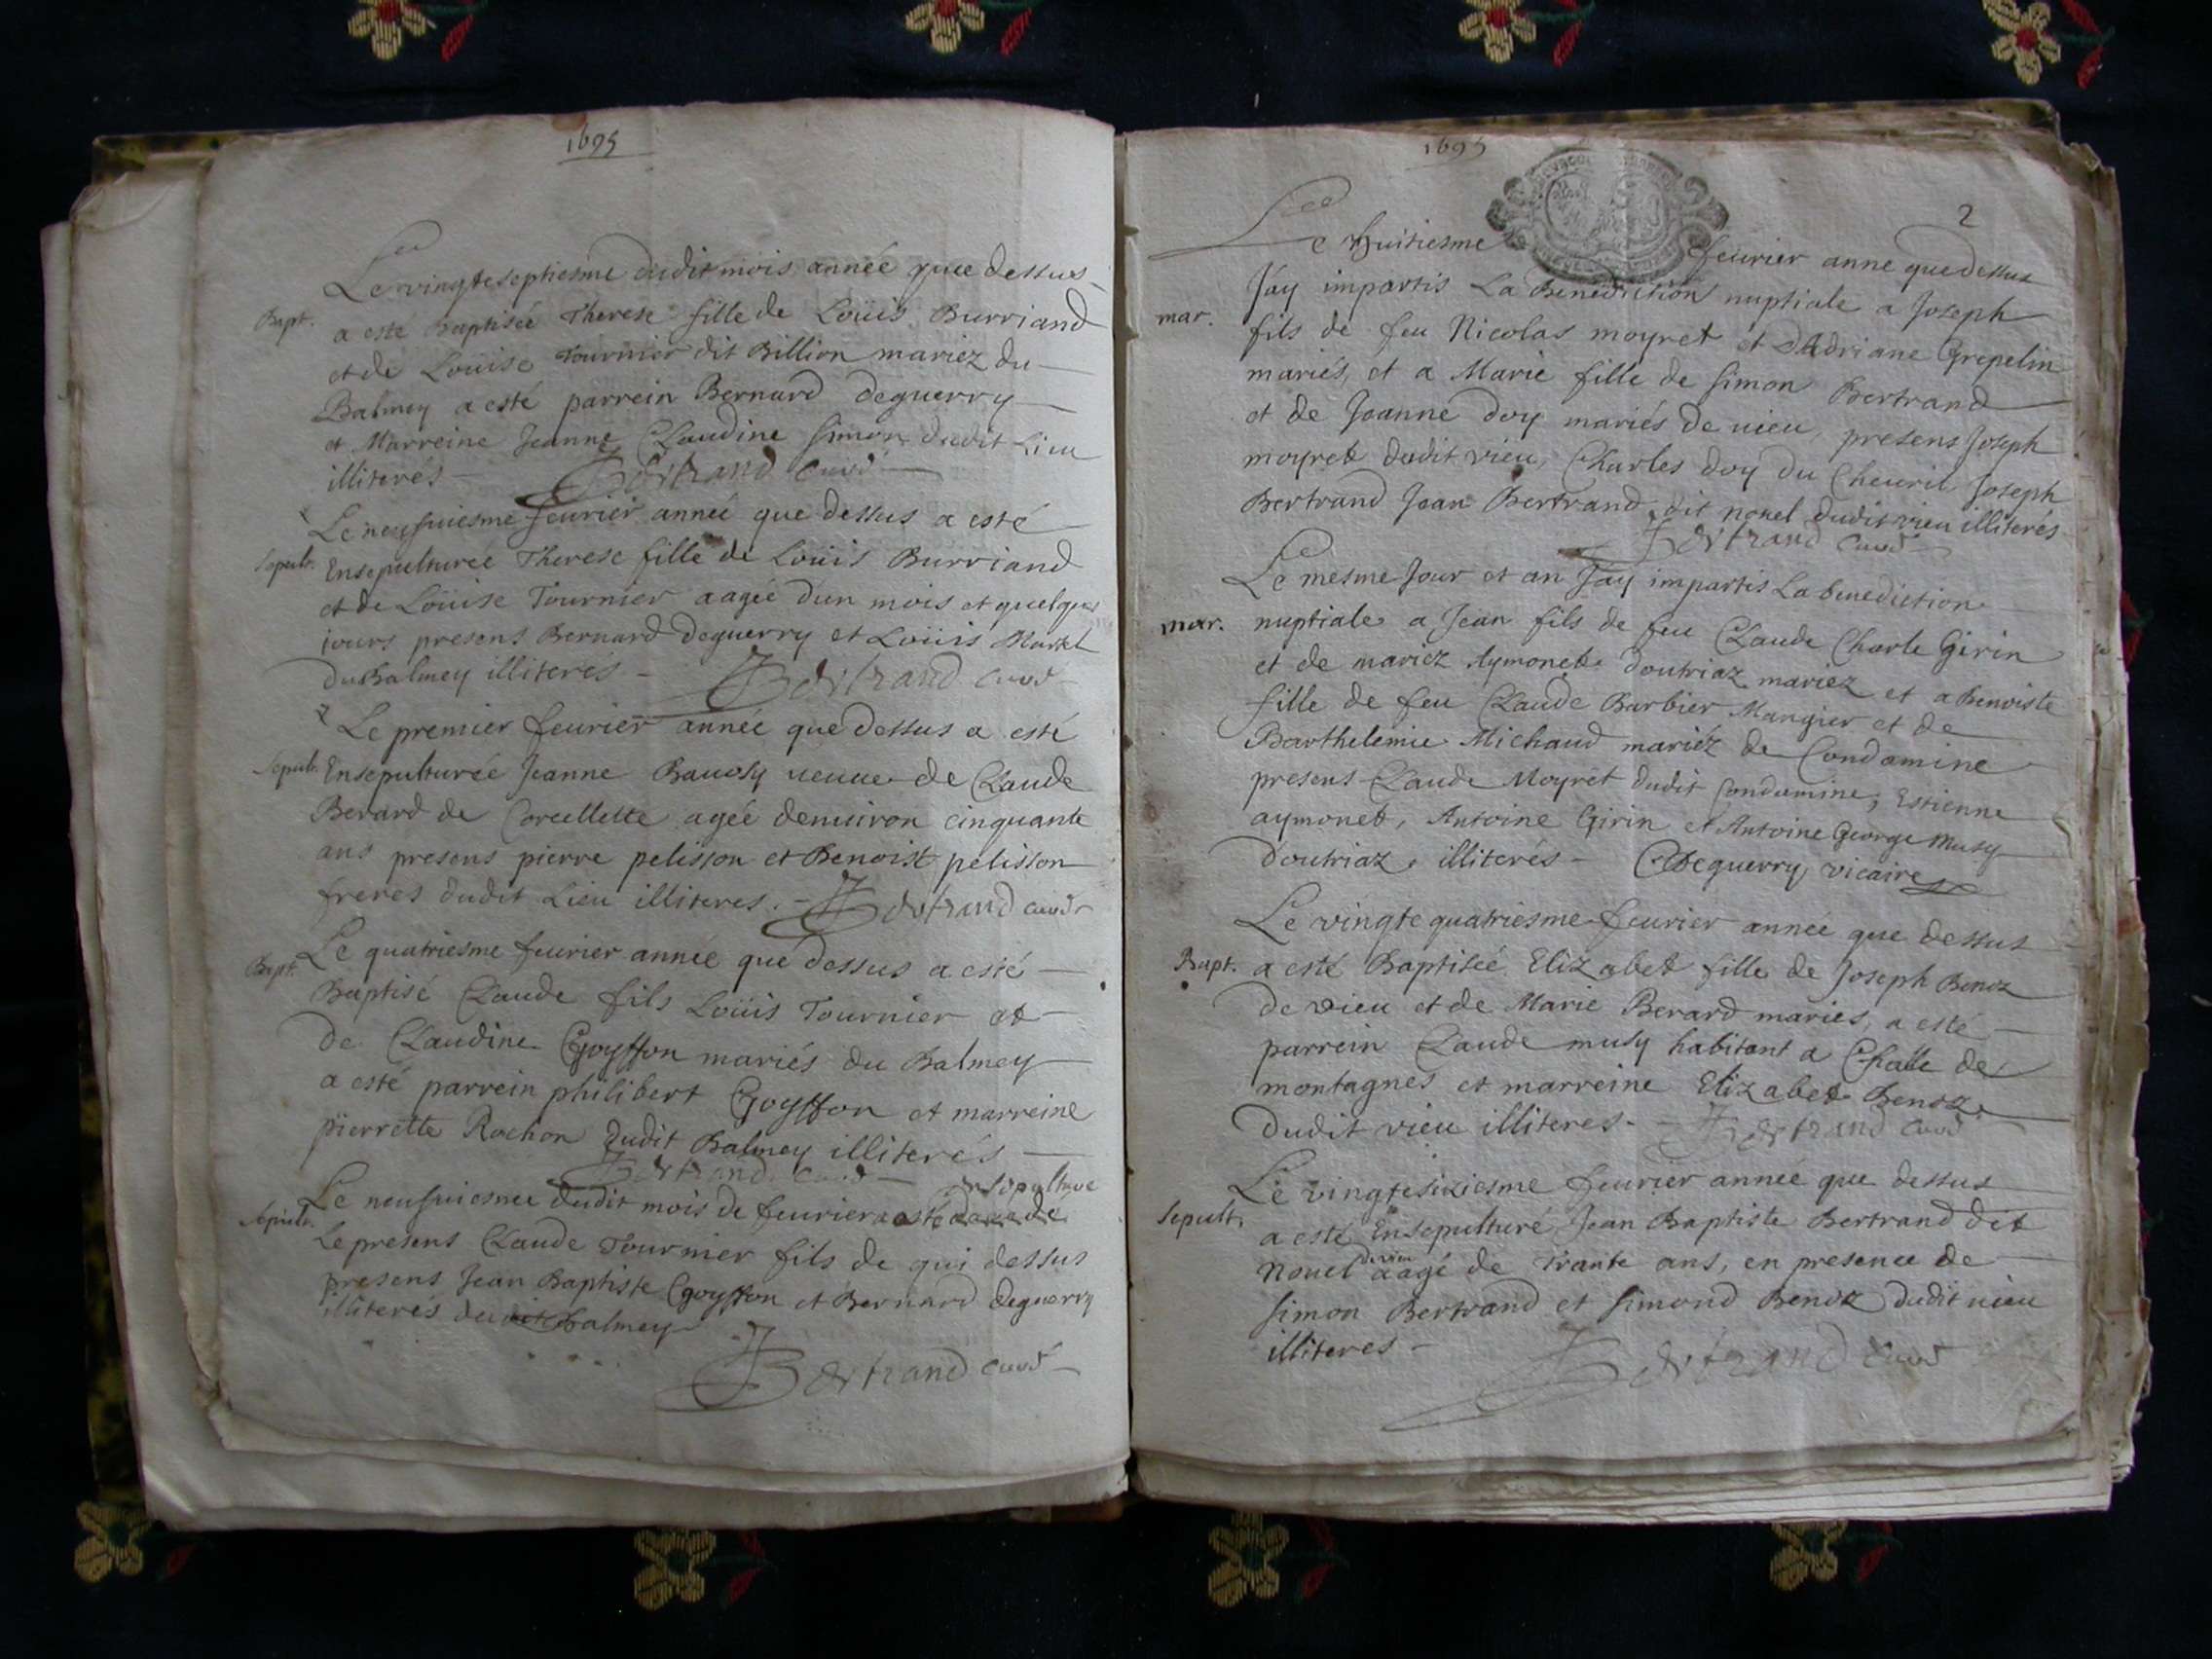 1695
Le vingtesepties​me dudit mois année que dessus
Bapt. a esté Baptisée Therese fille de Loüis Burriand
et de Loüise Tournier dit Billion mariez du
Balmey a esté parrein Bernard deguerry
et Marreine Jeanne Claudine Simon dudit Lieu
illiterés Bertrand curé
Le neufuiesme feurier année que dessus a esté
Sepult. Ensepulturée Therese fille de Loüis Burriand
et de Loüise Tournier aagée d'un mois et quelques
jours presens Bernard deguerry et Loüis
Du Balmey illiterés - Bertrand curé
Le premier feurier année que dessus a esté
Sepult. Ensepulturée Jeanne ueuue de Claude
Berard de Corcellette agée denuiron cinquante
ans presens pierre pelisson et Benoist pelisson
freres dudit Lieu illiteres. - Bertrand curé
Le quatriesme feurier année que dessus a esté
Bapt. Baptisé Claude fils Loüis Tournier et
de Claudine Goyffon mariés du Balmey
a esté parrein philibert Goyffon et marreine
pierrette Rochon dudit Balmey illiterés
Bertrand curé
ensepulture
Le neufuiesme dudit mois de feurier a esté
Sepult. Le presens Claude Tournier fils de qui dessus
presens Jean Baptiste Goyffon et Bernard deguerry
illiterés dudit Balmey
Bertrand curé
1695
2
Le huitiesme feurier anne que dessus
Jay impartis La Benediction nuptiale a Joseph
mar. fils de feu Nicolas moyret et dAdriane Grepelin
mariés, et a Marie fille de Simon Bertrand
et de Jeanne Doy mariés de uieu, presens Joseph
moyret dudit vieu, Charles doy du Cheuril Joseph
Bertrand Jean Bertrand dit nouel dudit vieu illiterés
Bertrand curé
Le mesme Jour et an Jay impartis La benediction
mar. nuptiale a Jean fils de feu Claude Charle Girin
et de mariez Aymonet doutriaz mariez et a Benoiste
fille de feu Claude Barbier Mangier et de
Barthelemie Michaud mariéz de Condamine
presens Claude Moyret dudit Condamine, Estienne
aymonet, Antoine Girin et Antoine George musy
doutriaz illiterés - Deguerry vicaire
Le vingte quatriesme feurier année que dessus
Bapt. a esté Baptisée Elizabet fille de Joseph Benoz
de vieu et de Marie Berard mariés, a esté
parrein Claude musy habitant a Challe de
montagnes et marreine Elizabet Benoz
dudit vieu illiteres. - Bertrand curé
Le vingtesixiesme feurier année que dessus
Sepult. a esté Ensepulturé Jean Baptiste Bertrand dit
de vieu
nouel aagé de trante ans, en presence de
Simon Bertrand et Simond Benoz dudit uieu
illiteres - Bertrand curé